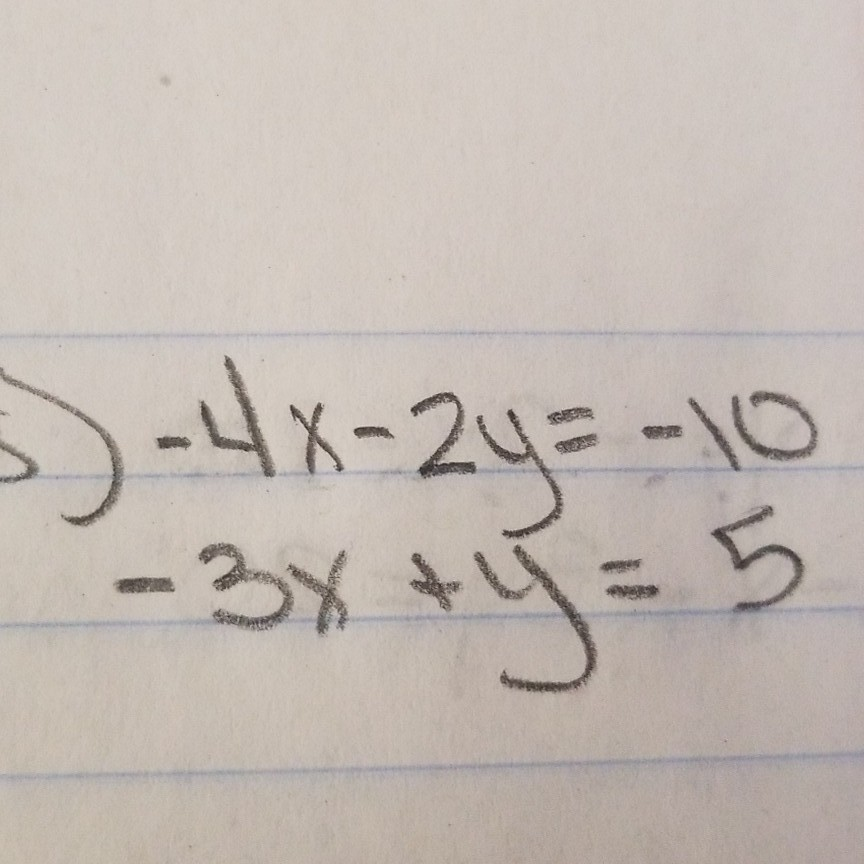 5) -4x - 2y = -10
-3x + y = 5